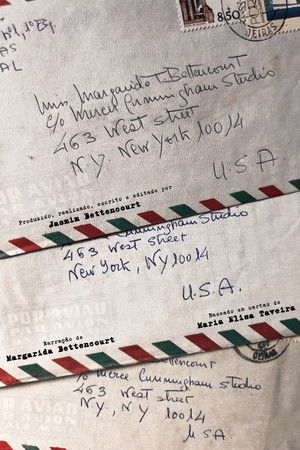 AS
AL
8,50
OEIRAS
Miss Margarida Bettencourt
c/o Merce Cunningham Studio
463 West street
N.Y. New York 10014
U.S.A
Produzido, realizado, escrito e editado por
Jasmin Bettencourt
Cunningham Studio
463 West street
New York, NY 10014
U.S.A.
Narração de
Margarida Bettencourt
Baseado em cartas de
Maria Elisa Taveira
ttencourt
c/o Merce Cunningham Studio
463 West street
N.Y., N.Y 10014
U.S.A.